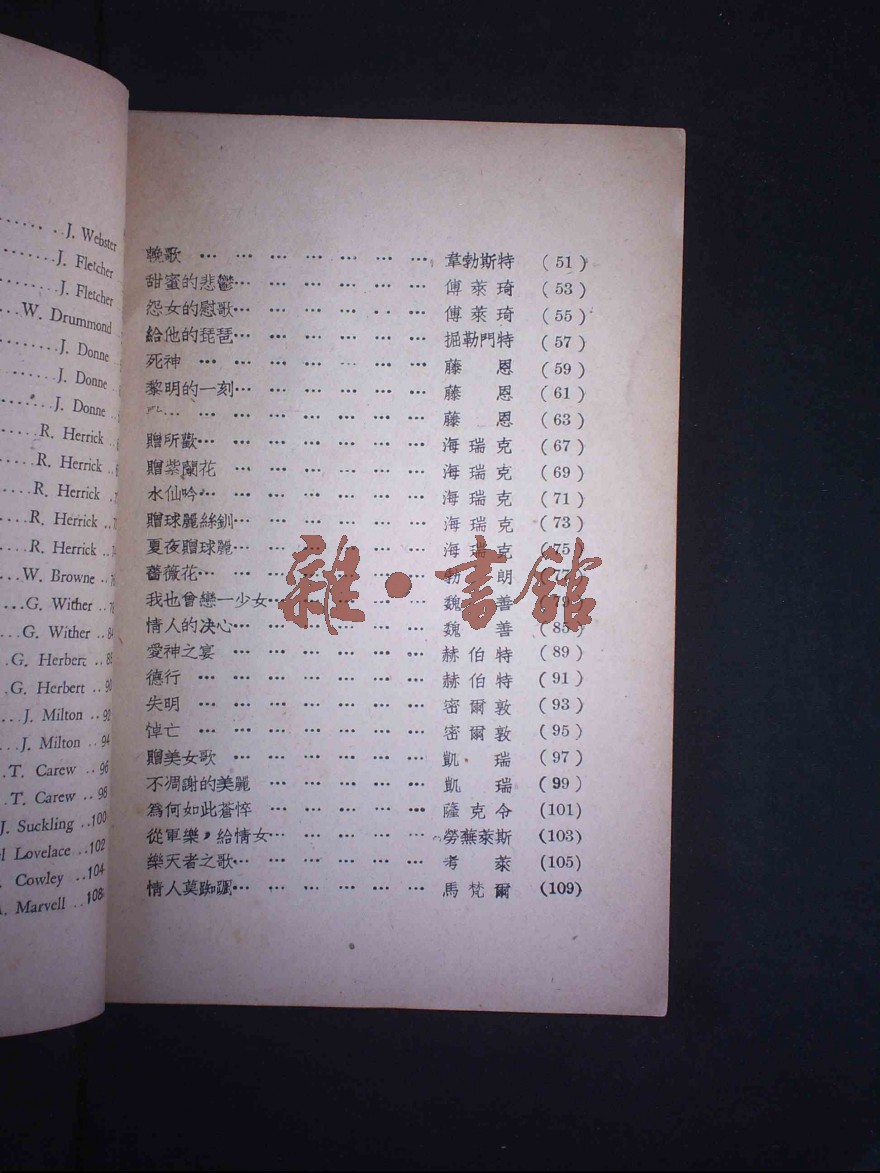 J. Webster
J. Fletcher
J. Fletcher
W. Drummond
J. Donne
J. Donne
J. Donne
R. Herrick
R. Herrick
R. Herrick
R. Herrick
R. Herrick
W. Browne
G. Wither
G. Wither .. 84
G. Herbert .. 88
G. Herbert .. 90
J. Milton .. 92
J. Milton .. 94
T. Carew .. 96
T. Carew .. 98
J. Suckling .. 100
Lovelace .. 102
Cowley .. 104
Marvell .. 108
輓歌 … … … … … … … 韋勃斯特 (51)
甜蜜的悲鬱… … … … … … 傅萊琦 (53)
怨女的慰歌… … … … … … 傅萊琦 (55)
給他的琵琶… … … … … … 掘勒門特 (57)
死神 … … … … … … … 藤恩 (59)
黎明的一刻… … … … … … 藤恩 (61)
… … … … … … 藤恩 (63)
贈所歡… … … … … … … 海瑞克 (67)
贈紫蘭花 … … … … … … 海瑞克 (69)
水仙吟… … … … … … … 海瑞克 (71)
贈球麗絲釧… … … … … … 海瑞克 (73)
夏夜贈球麗… … … … … … 海瑞克 (75)
薔薇花… … … … … … … 勃朗 (77)
我也曾戀一少女… … … … … 魏善 (79)
情人的决心… … … … … … 魏善 (85)
愛神之宴 … … … … … … 赫伯特 (89)
德行 … … … … … … … 赫伯特 (91)
失明 … … … … … … … 密爾敦 (93)
悼亡 … … … … … … … 密爾敦 (95)
贈美女歌 … … … … … … 凱瑞 (97)
不凋謝的美麗 … … … … … 凱瑞 (99)
爲何如此蒼悴 … … … … … 薩克令 (101)
從軍樂，給情女… … … … … 勞蕪萊斯 (103)
樂天者之歌… … … … … … 考萊 (105)
情人莫踟躕… … … … … … 馬梵爾 (109)
雜·書館